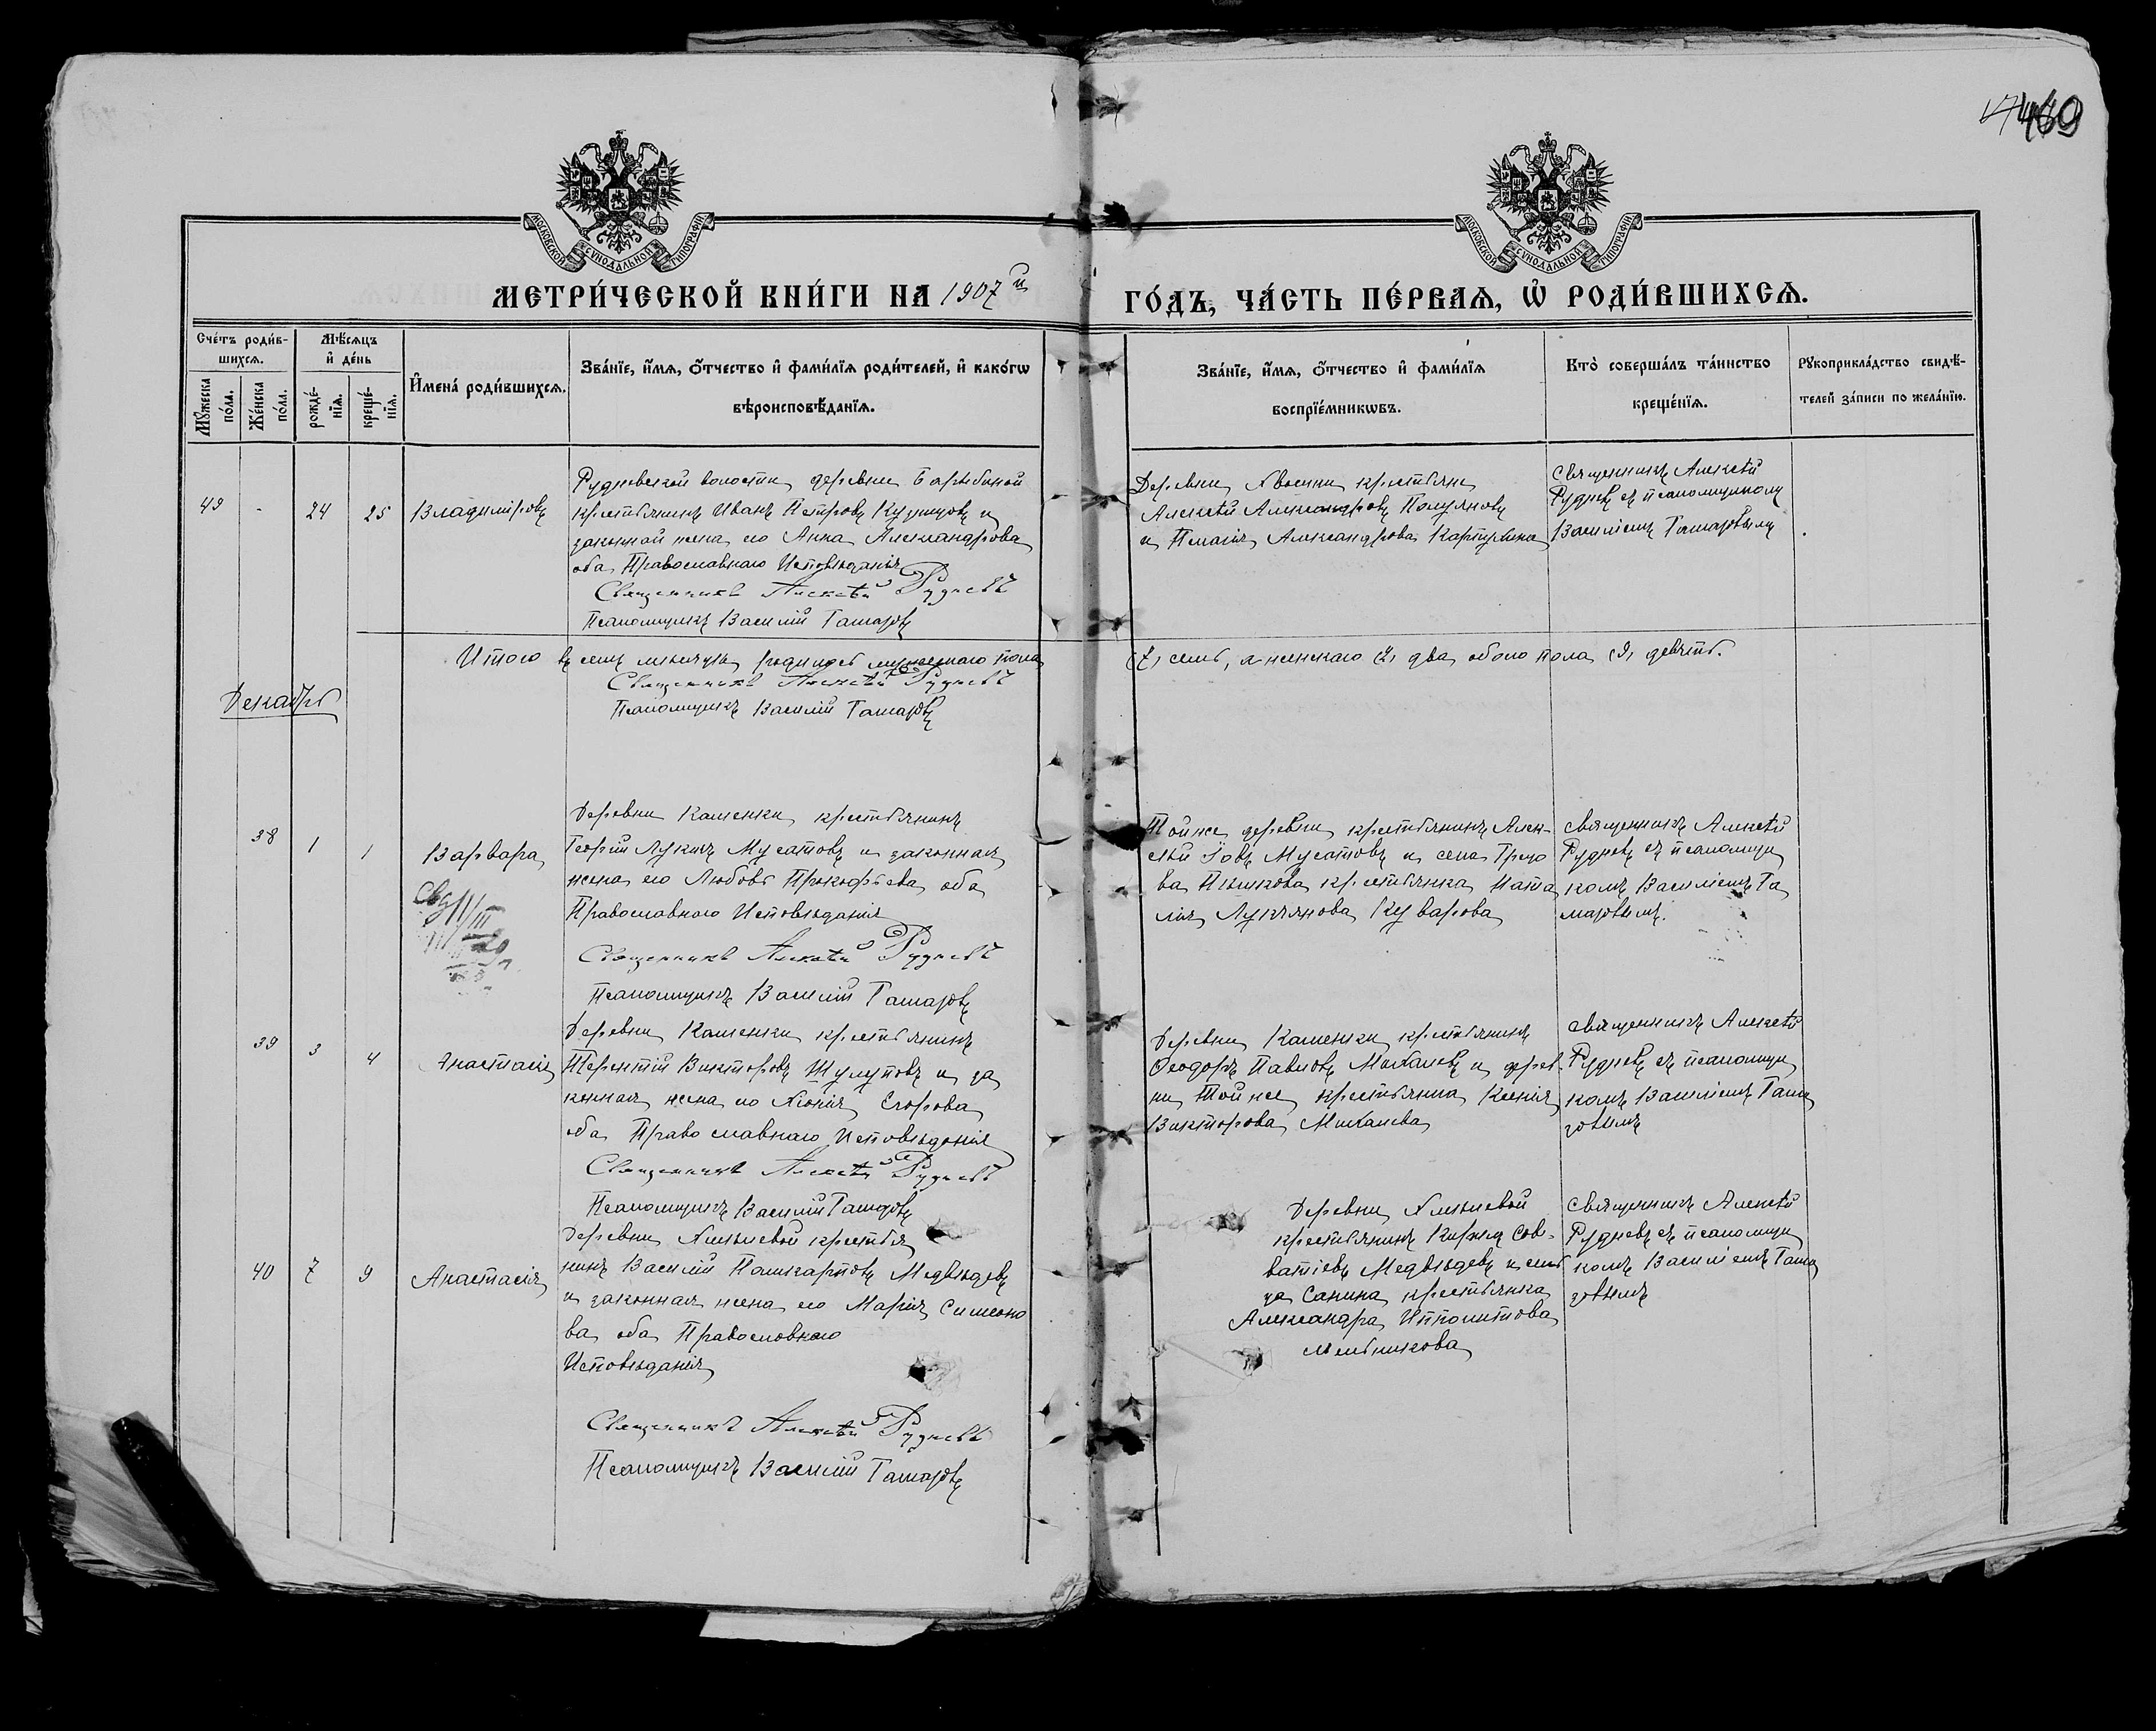 469
МОСКОВСКОЙ СУНОДАЛЬНОЙ ТИПОГРАФІИ
МОСКОВСКОЙ СУНОДАЛЬНОЙ ТИПОГРАФІИ
МЕТРИ́ЧЕСКОЙ КНИ́ГИ НА 1907й
ГО́ДЪ, ЧА́СТЬ ПЕ́РВАѦ, Ѡ҆ РОДИ́ВШИХСѦ.
Сче́тъ роди́в-
шихсѧ.
Мꙋ́жеска по́ла.
Же́нска по́ла.
Мѣ́сѧцъ
и҆ де́нь
рожде́-
нїѧ.
креще́-
нїѧ.
И҆мена́ роди́вшихсѧ.
Зва́нїе, и҆́мѧ, о҆́тчество и҆ фами́лїѧ роди́телей, и҆ како́гѡ
вѣроисповѣ́данїѧ.
Зва́нїе, и҆́мѧ, о҆́тчество и҆ фами́лїѧ
воспрїе́мникѡвъ.
Кто̀ соверша́лъ та́инство
креще́нїѧ.
Рꙋкоприкла́дство свидѣ́-
телей за́писи по жела́нїю.
49 - 24 25 Владиміръ
Рудневской волости деревни Барыбиной
крестьянинъ Иванъ Петровъ Купцовъ и
законной жена его Анна Александрова
оба Православнаго Исповѣданія
Священникъ Алексѣй Рудневъ
Псаломщикъ Василій
Деревни крестьяне
Алексѣй Александровъ
и Александрова
Священникъ Алексѣй
Рудневъ съ псаломщикомъ
Василіемъ
Итого въ семъ мѣсяцѣ родилось мужескаго пола
(7) семь, а женскаго (2) два, обоего пола (9) девять.
Священникъ Алексѣй Рудневъ
Псаломщикъ Василій
Декабрь
38 1 1 Варвара
Деревни Каменки крестьянинъ
Георгій Лукинъ Мусатовъ и законная
жена его Любовь Прокофьева оба
Православнаго Исповѣданія
Священникъ Алексѣй Рудневъ
Псаломщикъ Василій
Той же деревни крестьянинъ Алек-
сѣй Мусатовъ и села
крестьянка Ната
лія Лукьянова
Священникъ Алексѣй
Рудневъ съ псаломщи
комъ Василіемъ
39 3 4 Анастасія
Деревни Каменки крестьянинъ
Терентій Викторовъ Шулуповъ и за
конная жена его Хіонія Егорова
оба Православнаго Исповѣданія
Священникъ Алексѣй Рудневъ
Псаломщикъ Василій
Деревни Каменки крестьянинъ
Ѳеодоръ Павловъ Михалевъ и дерев-
ни той же крестьянка Ксенія
Викторова Михалева
Священникъ Алексѣй
Рудневъ съ псаломщи
комъ Василіемъ
40 7 9 Анастасія
Деревни Хмѣлевой крестья
нинъ Василій Поликарповъ Медвѣдевъ
и законная жена его Марія Симеоно
ва оба Православнаго
Исповѣданія
Священникъ Алексѣй Рудневъ
Псаломщикъ Василій
Деревни Хмѣлевой
крестьянинъ Сав-
ватіевъ Медвѣдевъ и сель
ца Санина крестьянка
Александра Ипполитова
Мельникова
Священникъ Алексѣй
Рудневъ съ псаломщи
комъ Василіемъ